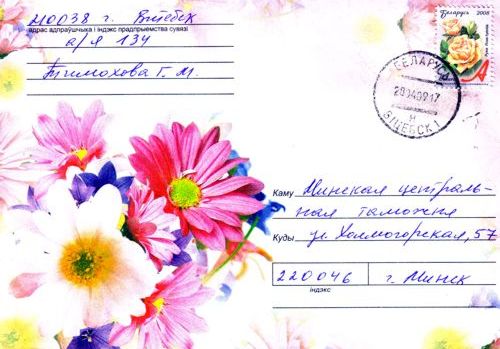 210038 г. Витебск
адрас адпраўшчыка і індэкс прадпрыемства сувязі
а/я 134
Тимохова Г. М.
Беларусь 2008
A
БЕЛАРУСЬ
280409 17
ВІЦЕБСК 1
Каму Минская централь-
ная таможня
Куды ул. Холмогорская, 57
220046 г. Минск
індэкс